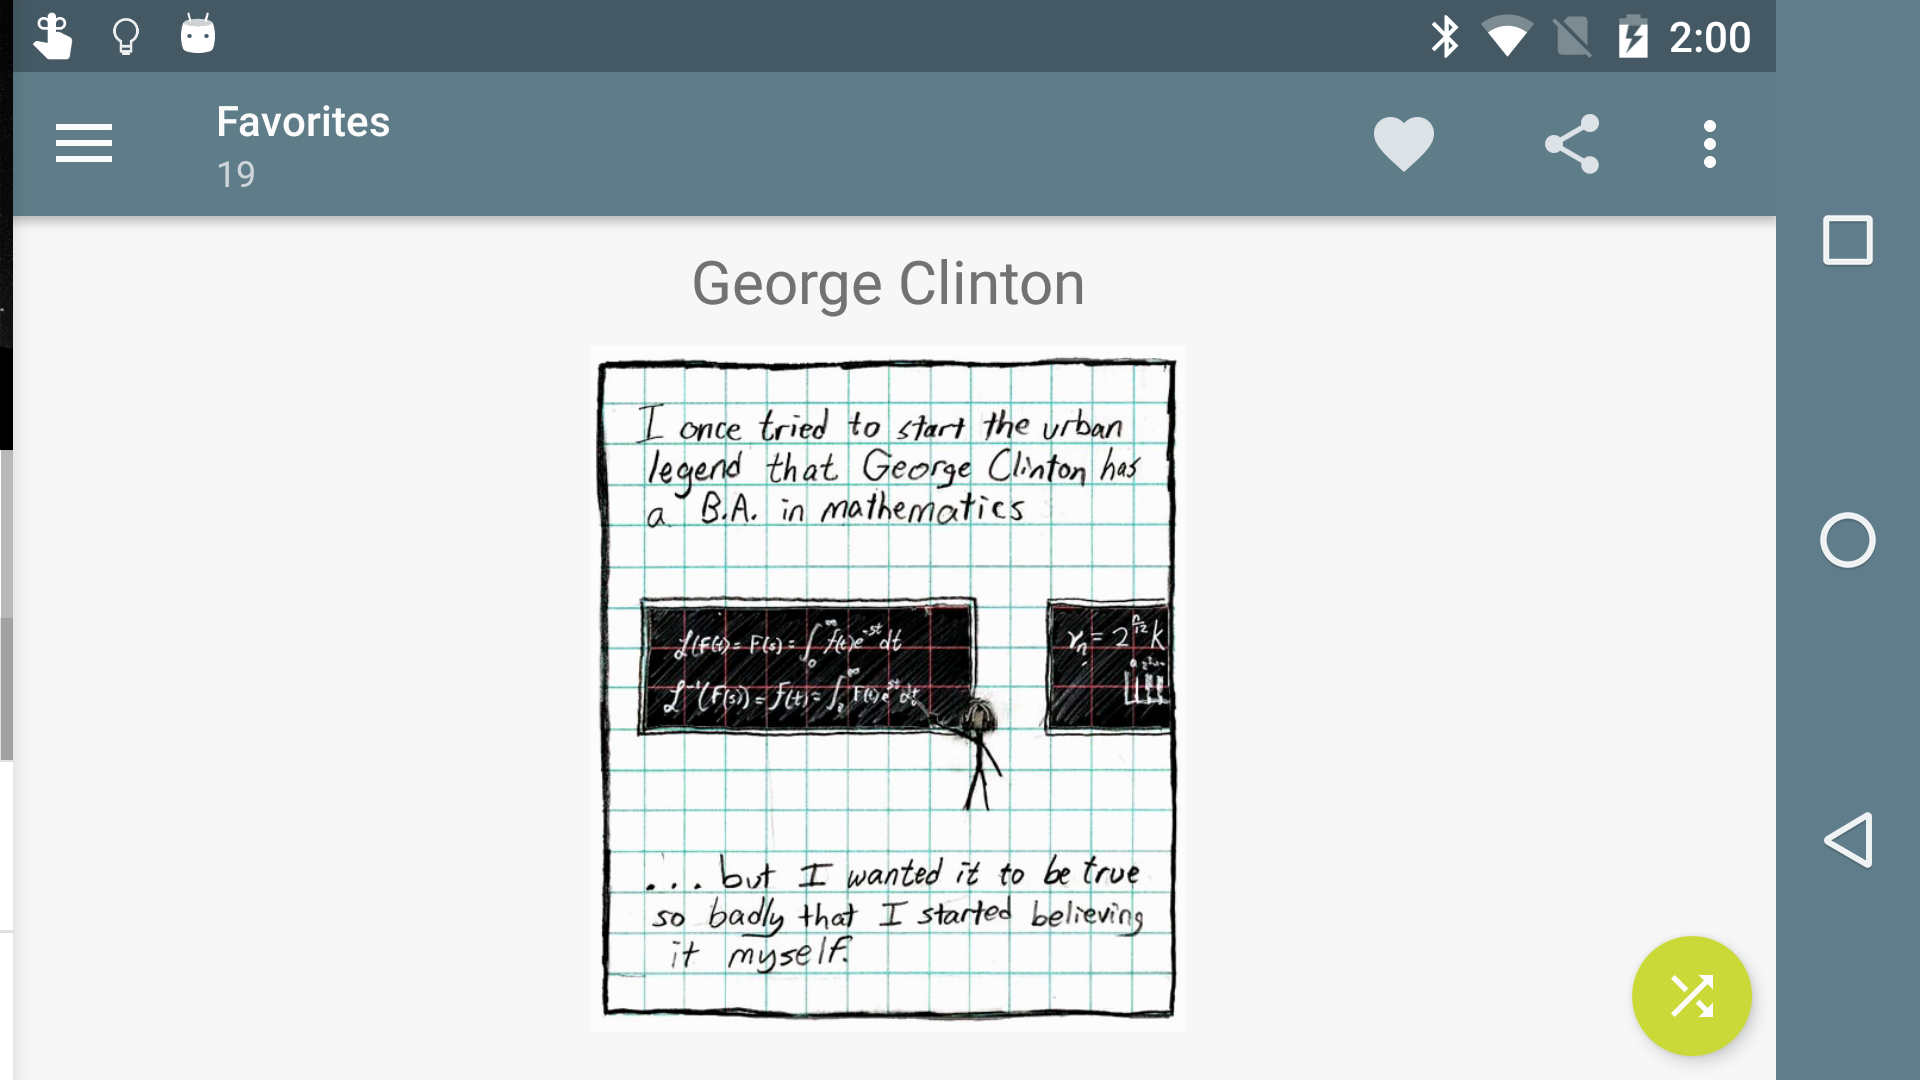 2:00
Favorites
19
George Clinton
I once tried to start the urban
legend that George Clinton has
a B.A. in mathematics
ℒ(F(t)) = F(s) = ∫₀^∞ f(t)e^-st dt
ℒ⁻¹(F(s)) = f(t) =
rₙ = 2^(n/12) k
... but I wanted it to be true
so badly that I started believing
it myself.